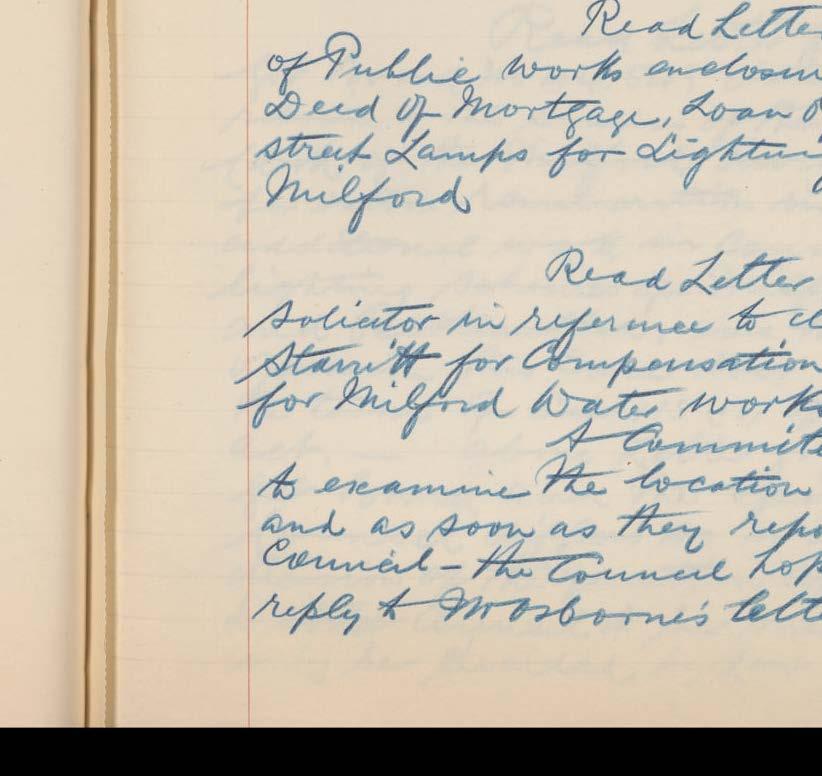 Read Lette
of Public works enclosin
Deed of Mortgage, Loan o
street Lamps for Lightin
Milford
Read Letter
Solicitor in reference to cl
Starritt for Compensation
for Milford Water works
A Committe
to examine the location
and as soon as they repo
Council - the Council hop
reply to Mr Osborne's lette